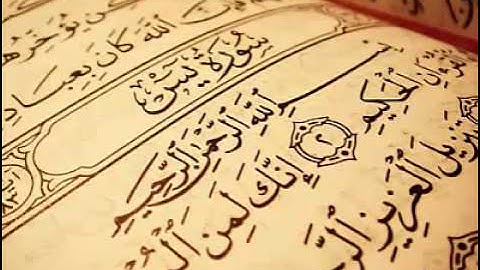 كِن يُؤَخِّرُهُمْ
ٱللَّهَ كَانَ بِعِبَادِ
سُورَةُ يسٓ
بِسْمِ ٱللَّهِ ٱلرَّحْمَٰنِ ٱلرَّحِيمِ
قُرْءَانِ ٱلْحَكِيمِ ٢ إِنَّكَ لَمِنَ ٱلْمُ
تَنزِيلَ ٱلْعَزِيزِ ٱلرَّ